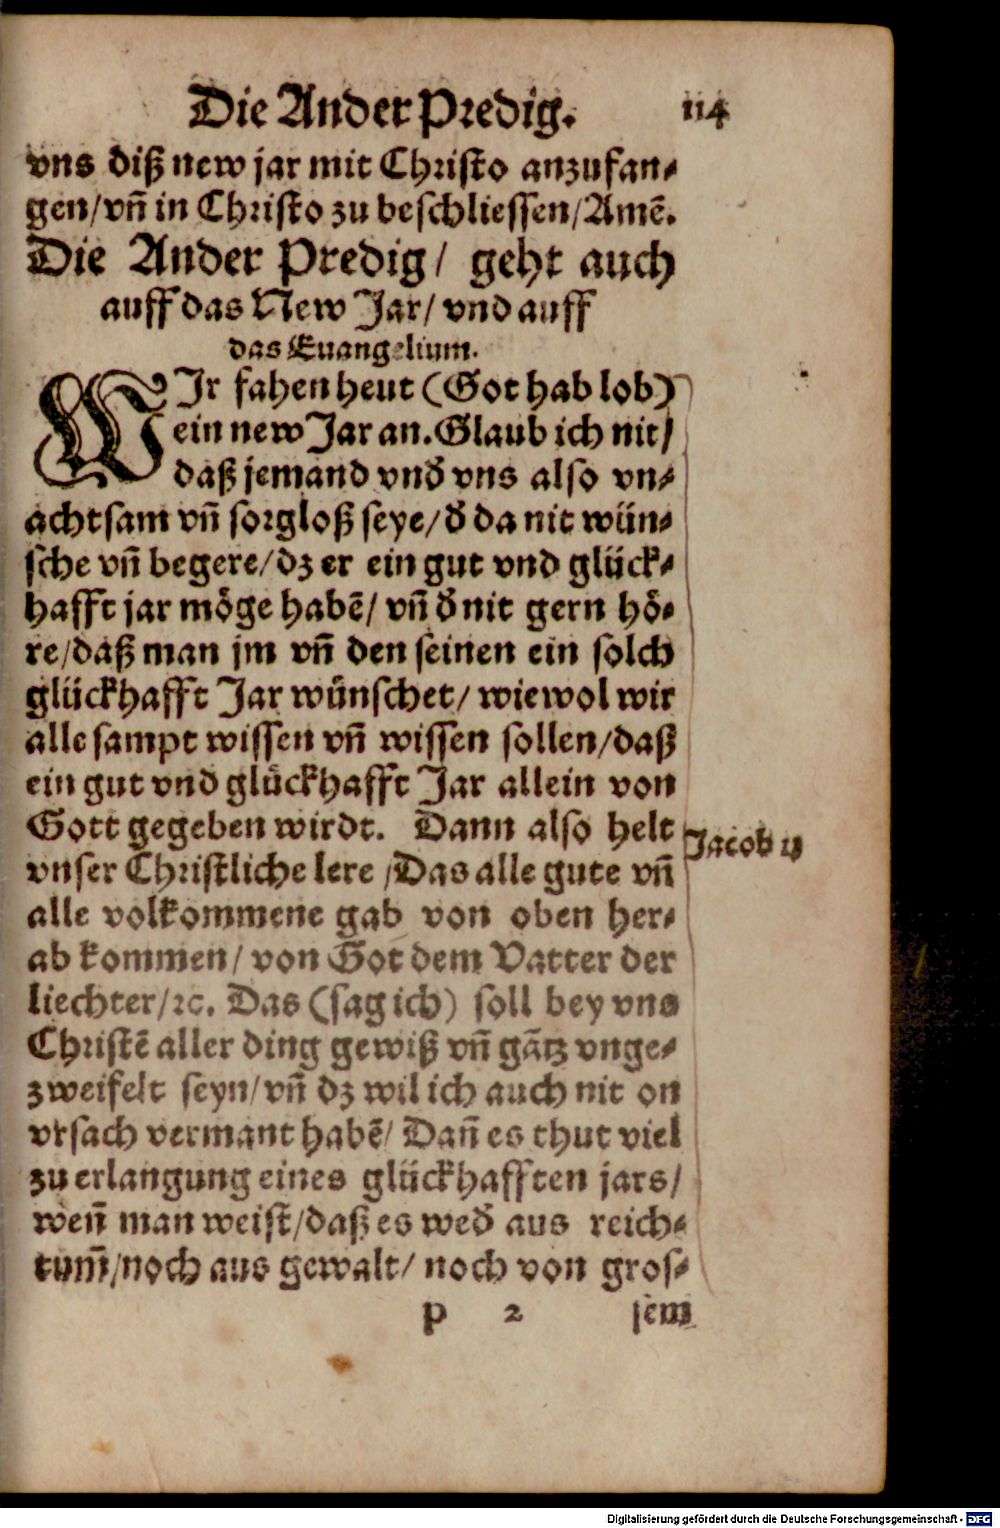 Die Ander Predig. 114
vns diß new jar mit Christo anzufan⸗
gen/vñ in Christo zu beschliessen/Amẽ.
Die Ander Predig/ geht auch
auff das New Jar/ vnd auff
das Euangelium.
WJr fahen heut (Got hab lob)
ein new Jar an. Glaub ich nit/
daß jemand vnď vns also vn⸗
achtsam vñ sorgloß seye/ď da nit wün⸗
sche vñ begere/dz er ein gut vnd glück⸗
hafft jar möge habẽ/ vñ ď nit gern hö⸗
re/daß man jm vñ den seinen ein solch
glückhafft Jar wünschet/ wiewol wir
alle sampt wissen vñ wissen sollen/daß
ein gut vnd glückhafft Jar allein von
Gott gegeben wirdt. Dann also helt
Jacob ij
vnser Christliche lere /Das alle gute vñ
alle volkommene gab von oben her⸗
ab kommen/ von Got dem Vatter der
liechter/ꝛc. Das (sag ich) soll bey vns
Christẽ aller ding gewiß vñ gãtz vnge⸗
zweifelt seyn/vñ dz wil ich auch nit on
vrsach vermant habẽ/ Dañ es thut viel
zu erlangung eines glückhafften jars/
weñ man weist/daß es weď aus reich⸗
tum̃/noch aus gewalt/ noch von gros⸗
p 2 sem
Digitalisierung gefördert durch die Deutsche Forschungsgemeinschaft - DFG